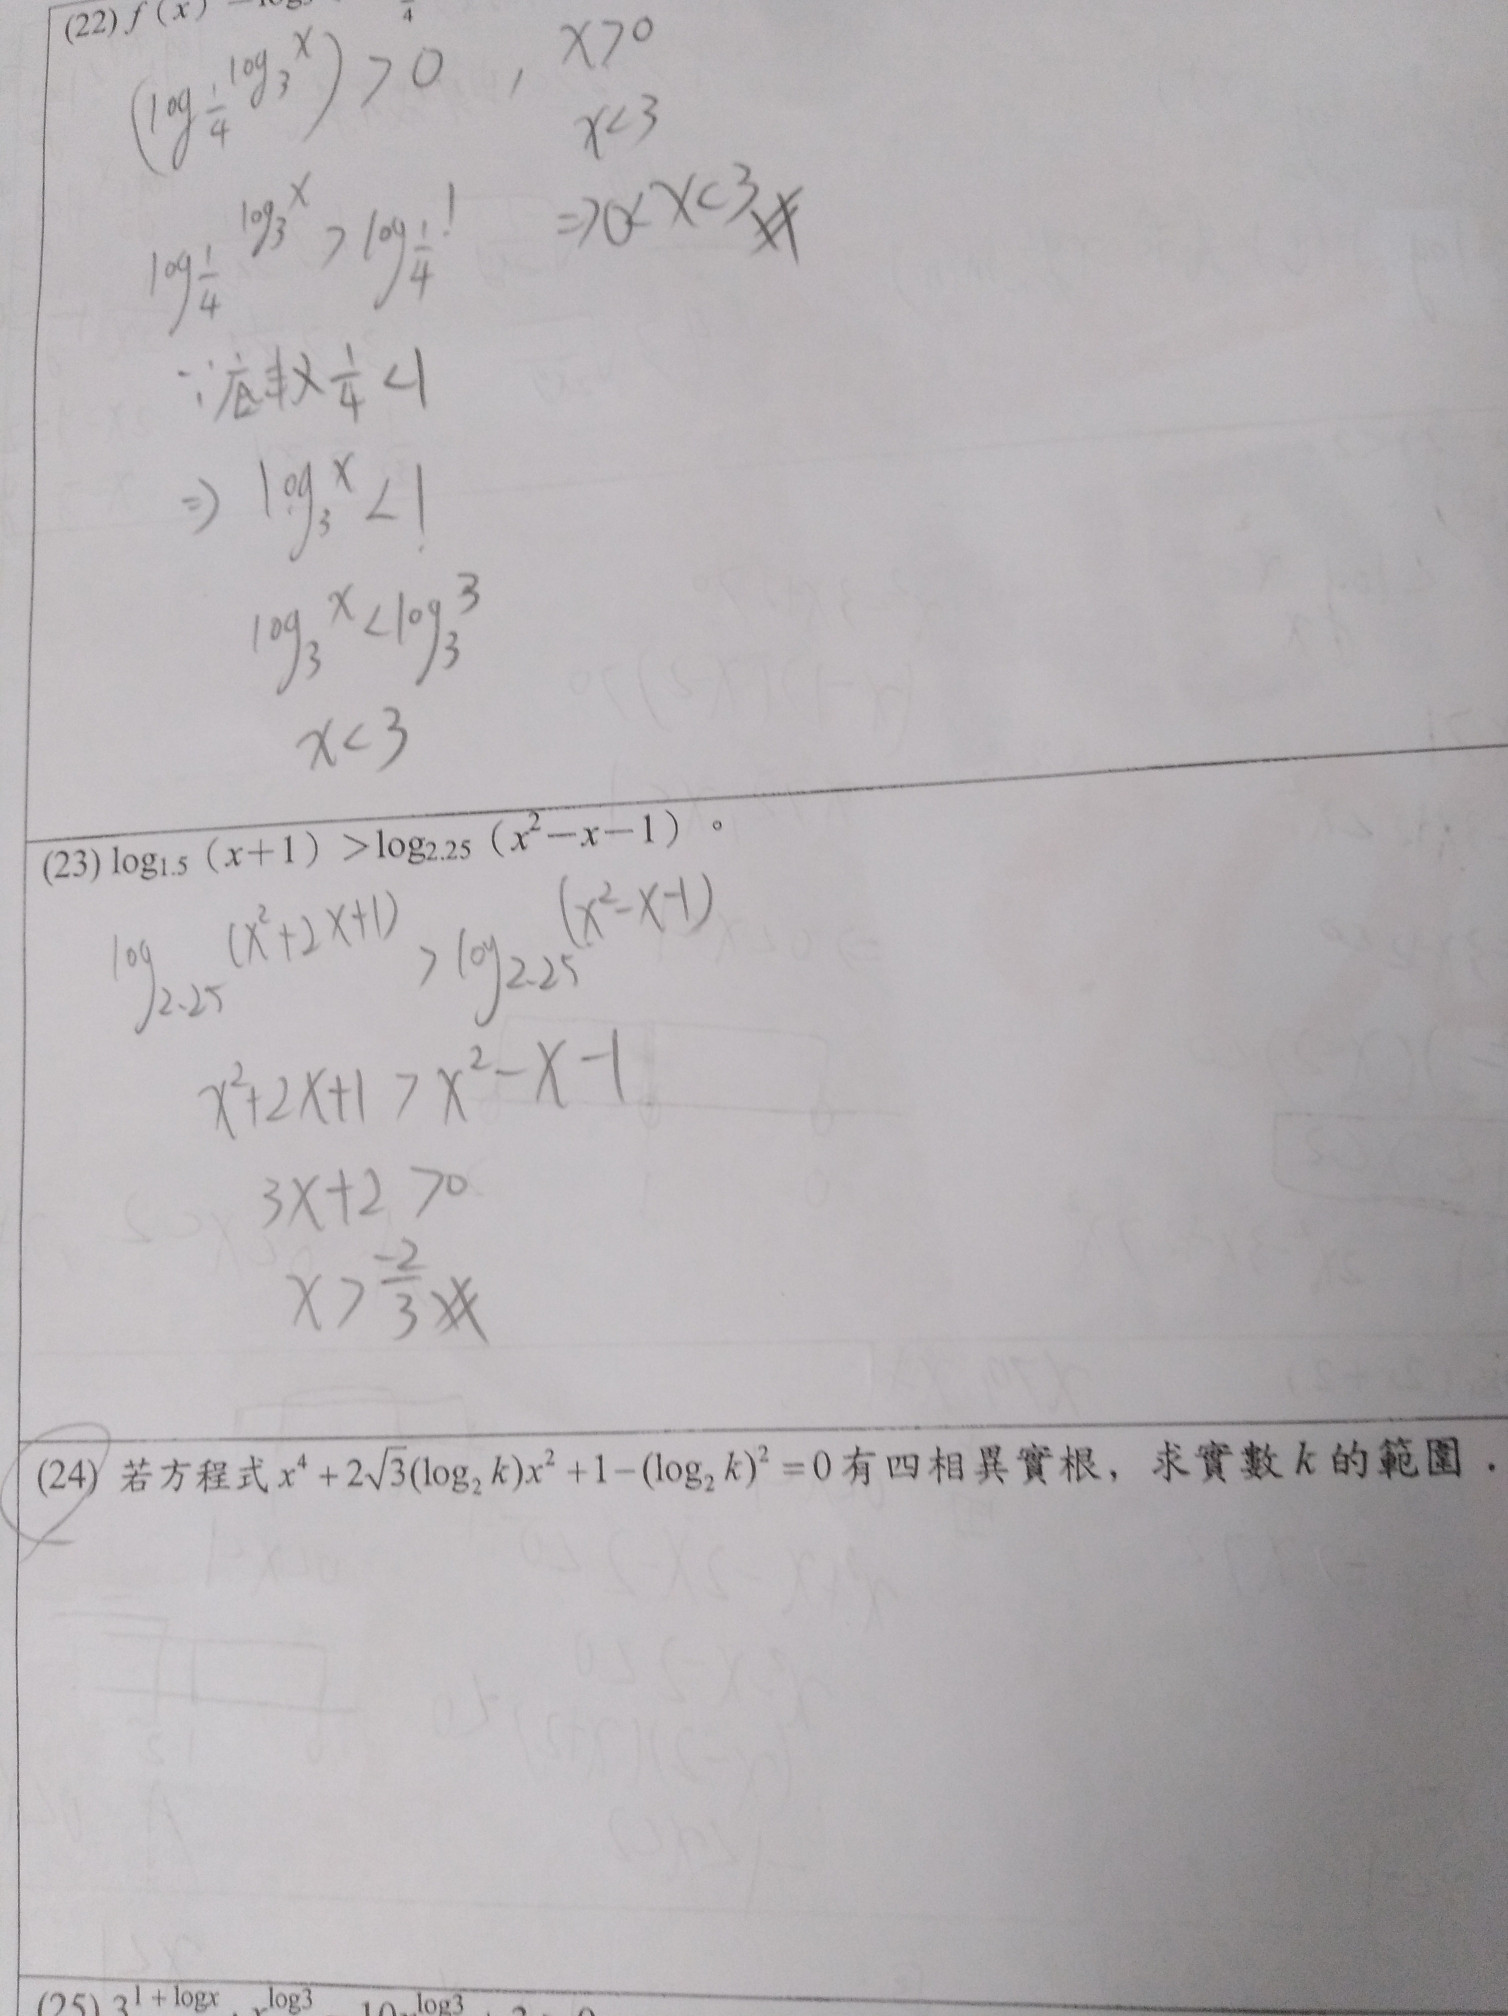 (22) f(x)
(log_{1/4} log_3 x) > 0 , x>0
x<3
log_{1/4} log_3 x > log_{1/4} 1 ⇒ 0<x<3
∵底数 1/4 <1
⇒ log_3 x < 1
log_3 x < log_3 3
x<3
(23) log_{1.5} (x+1) > log_{2.25} (x²−x−1) 。
log_{2.25} (x²+2x+1) > log_{2.25} (x²-x-1)
x²+2x+1 > x²-x-1
3x+2 >0
x > -2/3
(24) 若方程式 x⁴+2√3(log₂ k)x²+1−(log₂ k)²=0 有四相異實根，求實數 k 的範圍．
(25) 3^{1+logx} x^{log3} 10 log3